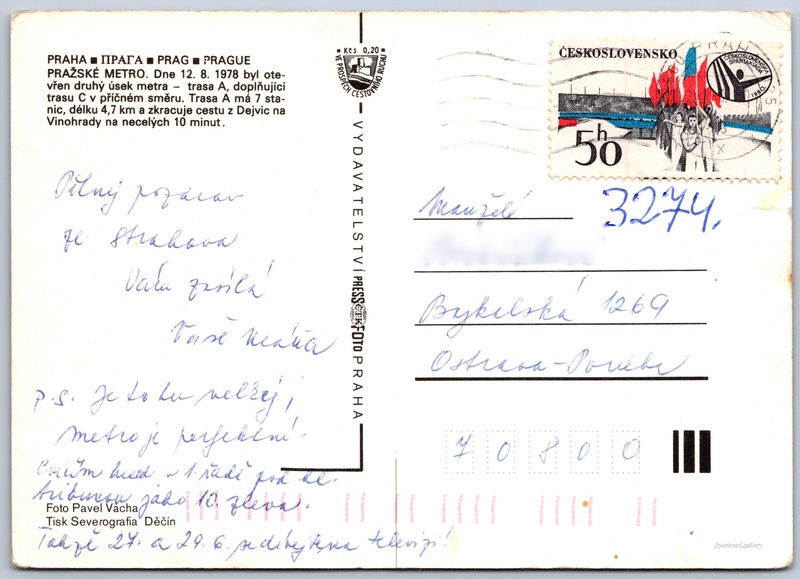 PRAHA ■ ПРАГА ■ PRAG ■ PRAGUE
PRAŽSKÉ METRO. Dne 12. 8. 1978 byl ote-
vřen druhý úsek metra – trasa A, doplňující
trasu C v příčném směru. Trasa A má 7 sta-
nic, délku 4,7 km a zkracuje cestu z Dejvic na
Vinohrady na necelých 10 minut.
Pěkný pozdrav
ze Strahova
Vám zasílá
Vaše
p.s. Je to tu velký,
metro je perfektní.
Cvičím hned v 1 řadě pod hl.
tribunou jako 10. zleva.
Takže 27. a 29. 6. se dívejte na televizi!
Foto Pavel Vácha
Tisk Severografia Děčín
Kčs 0,20
VE PROSPĚCH CESTOVNÍHO RUCHU
VYDAVATELSTVÍ PRESSFOTO PRAHA
ČTK
ČESKOSLOVENSKO
ČESKOSLOVENSKÁ SPARTAKIÁDA 1980
50 h
PRAHA
3274.
Manželé
1269
Ostrava-Poruba
70800
//postcard.gallery